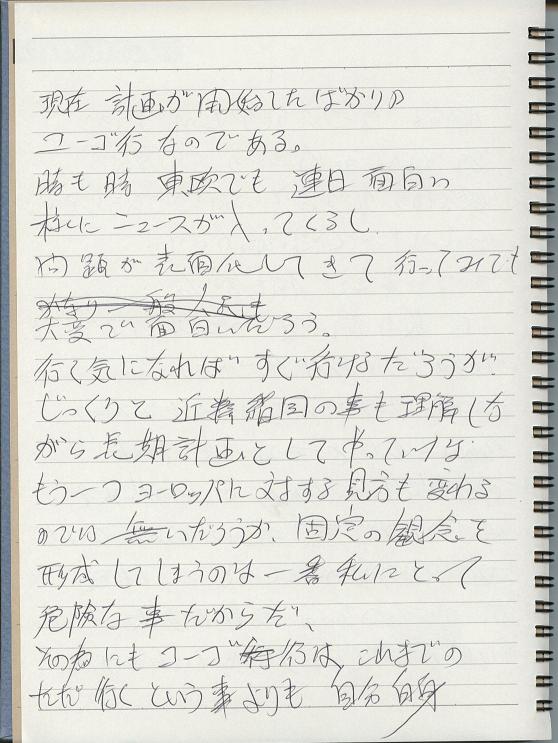 現在 計画が開始したばかりの
ユーゴ行なのである。
時も時 東欧でも 連日 面白い
様にニュースが入ってくるし
問題が表面化してきて 行ってみても
かなり一般人民も
大変で面白いだろう。
行く気になればすぐ行けるだろうが
じっくりと 近隣諸国の事も理解しな
がら長期計画としてやっていけば
もう一つヨーロッパに対する見方も変わる
のでは無いだろうか、固定の観念を
形成してしまうのは一番私にとって
危険な事だからだ、
その為にもユーゴ行は、これまでの
ただ行くという事よりも 自分自身